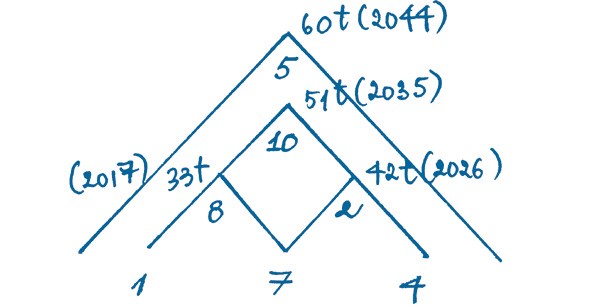 60t (2044)
5
51t (2035)
10
(2017) 33t
42t (2026)
8
2
1
7
4